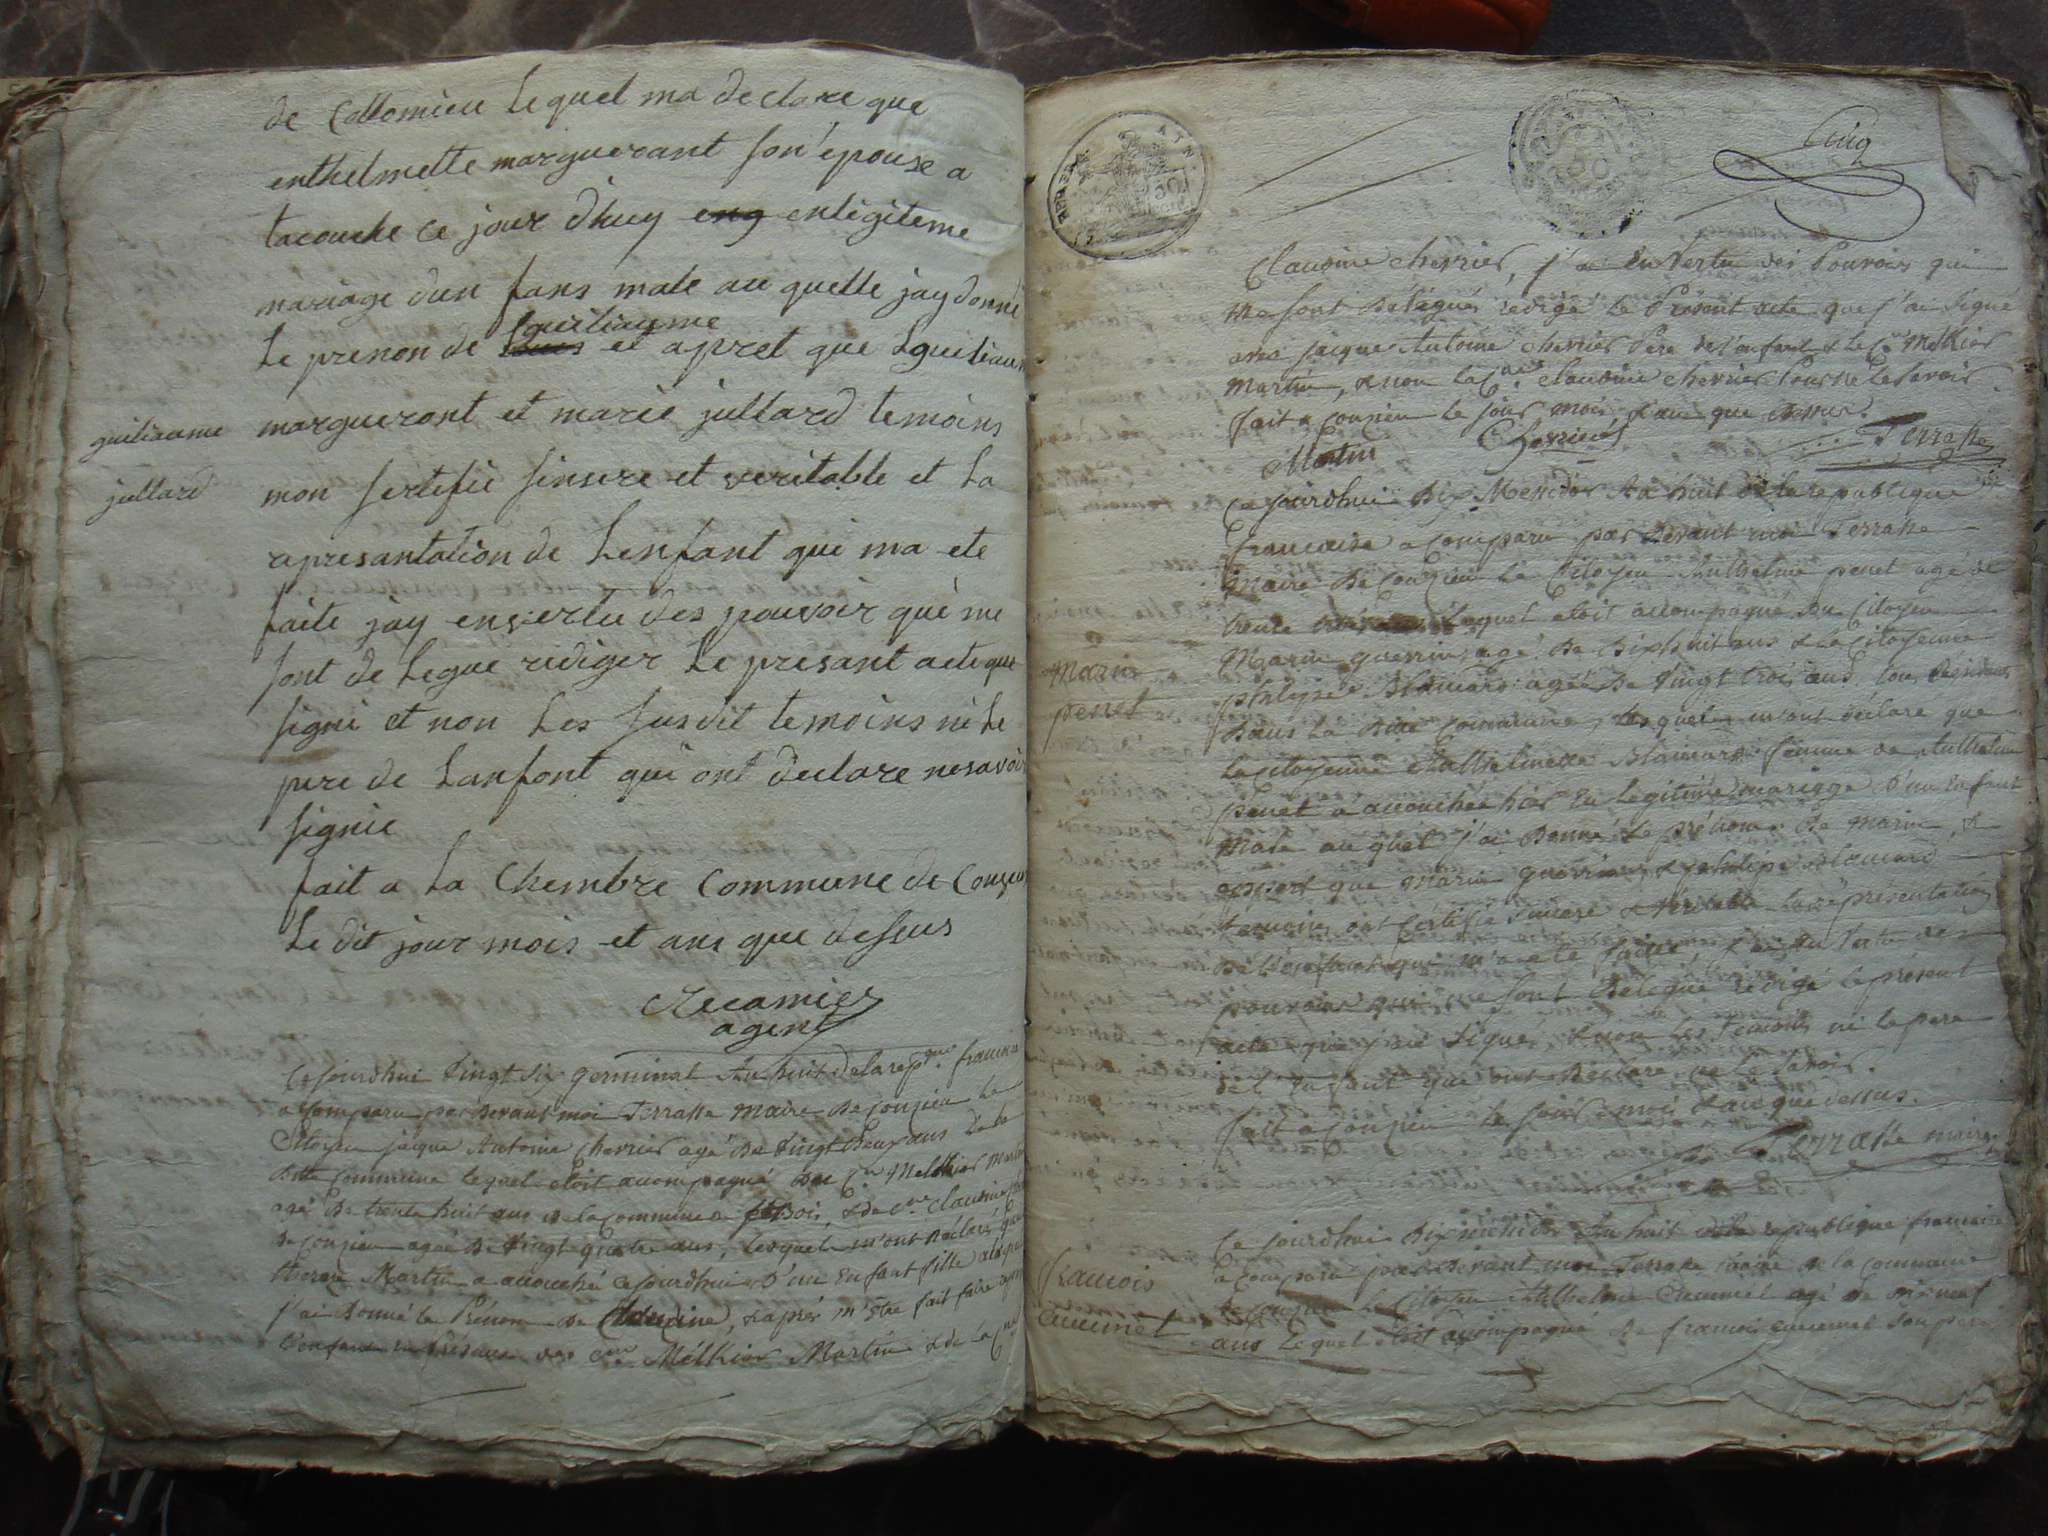 de Collomieu Lequel ma declare que
enthelmette marguerant son épouse a
tacouche ce jour dhuy eng enlegiteme
mariage dun fans male au quelle jay donné
guiliaume
Le prenon de et apret que Lguiliaume
guiliaume
jullard
margueront et marie jullard temoins
mon sertefié sinsere et veritable et La
rapresantation de Lenfant qui ma ete
faite jay envertu des pouvoir qui me
sont de Legue rediger Le presant acte que
signé et non Les susdit temoins ni Le
pere de Lanfont qui ont declare nesavoir
signie
fait a La Chembre Commune de Couzeu
Le dit jour mois et ans que dessus
Recamier
agent
Cejourdhui Vingt six germinal An huit delarepque francaise
a Comparu par devant moi Terrasse maire de conzieu Le
Citoyen jaque Antoine Chevrier agé de Vingt Deux ans de la
dite Commune lequel etoit accompagné du Cen Melkior Martin
agé de trente huit ans de la commune de & de Cne Claudine
de Conzieu agée de Vingt quatre ans, lesquels m'ont déclaré que
Martin a accouché cejourdhui D'un Enfant fille alaquelle
j'ai donné le Prénom de Claudine, & aprés m'etre fait faire
L'enfant en présence des Cen Melkior Martin & de la Cne
Cinq
Claudine chevrier, j'ai En Vertu des Pouvoirs qui
me sont délégués redigé le Présent acte que j'ai signé
avec jaque Antoine chevrier Pere de l'enfant & le Cen Melkior
Martin, & non la Cne Claudine chevrier Pour ne le savoir.
fait a conzieu le jour mois & an que dessus.
Martin Chevrier Terrasse
Ce jourdhui Dix Messidor An huit de la republique
francaise a comparu par devant moi Terrasse
Maire de conzieu Le Citoyen Anthelme penet agé de
trente lequel etoit accompagné du Citoyen
Marin
penet
Marin guerrin agé de dix huit ans & la Citoyenne
philipine Blanchard agée de Vingt trois ans tous résidants
dans la dite Commune, lesquels m'ont déclaré que
la citoyenne Anthelmette femme de Anthelme
penet a accouchée hier En Legitime mariage D'un Enfant
Male au quel j'ai Donné le prénom de Marin, &
aprés que Marin guerrin, & philipe
témoins ont certifié sincere & Véritable la réprésentation
de L'enfant qui m'a été faite, j'ai En Vertu des
pouvoirs qui me sont Delegué redigé le présent
acte que j'ai signé, & non les temoins ni le pere
de l'Enfant que ont déclaré ne le savoir.
fait a conzieu le jour mois & an que dessus.
Terrasse maire
francois
Cuccumel
Ce jourdhui Dix messidor An huit de la republique francaise
a comparu par devant moi Terrasse maire de la commune
de conzieu Le Citoyen Anthelme agé de
ans Lequel etoit accompagné de francois son pere